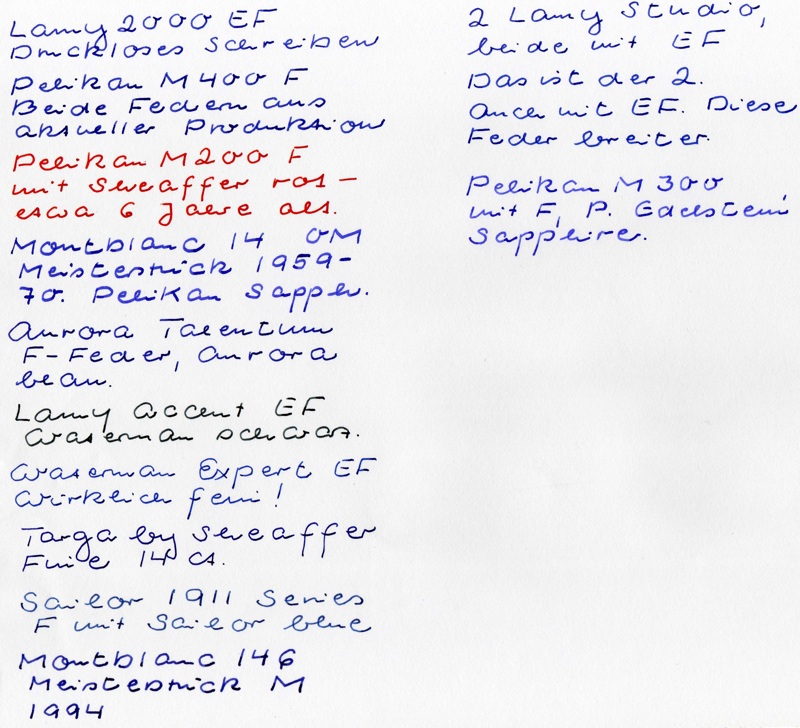 Lamy 2000 EF
Druckloses Schreiben
Pelikan M400 F
Beide Federn aus
aktueller Produktion
Pelikan M200 F
mit Sheaffer rot –
etwa 6 Jahre alt.
Montblanc 14 OM
Meisterstück 1959-
70. Pelikan Sapph.
Aurora Talentum
F-Feder, Aurora
blau.
Lamy accent EF
Waterman schwarz.
Waterman Expert EF
Wirklich fein!
Targa by Sheaffer
Fine 14 ct.
Sailor 1911 Series
F mit Sailor blue
Montblanc 146
Meisterstück M
1994
2 Lamy Studio,
beide mit EF
Das ist der 2.
Auch mit EF. Diese
Feder breiter.
Pelikan M 300
mit F, P. Edelstein
Sapphire.